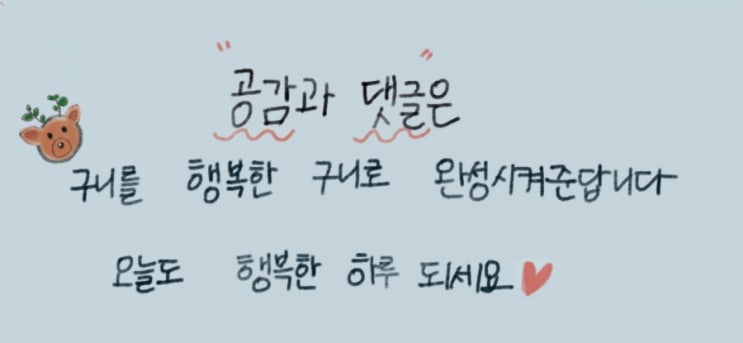 "공감과 댓글은"
구니를 행복한 구니로 완성시켜준답니다
오늘도 행복한 하루 되세요♥